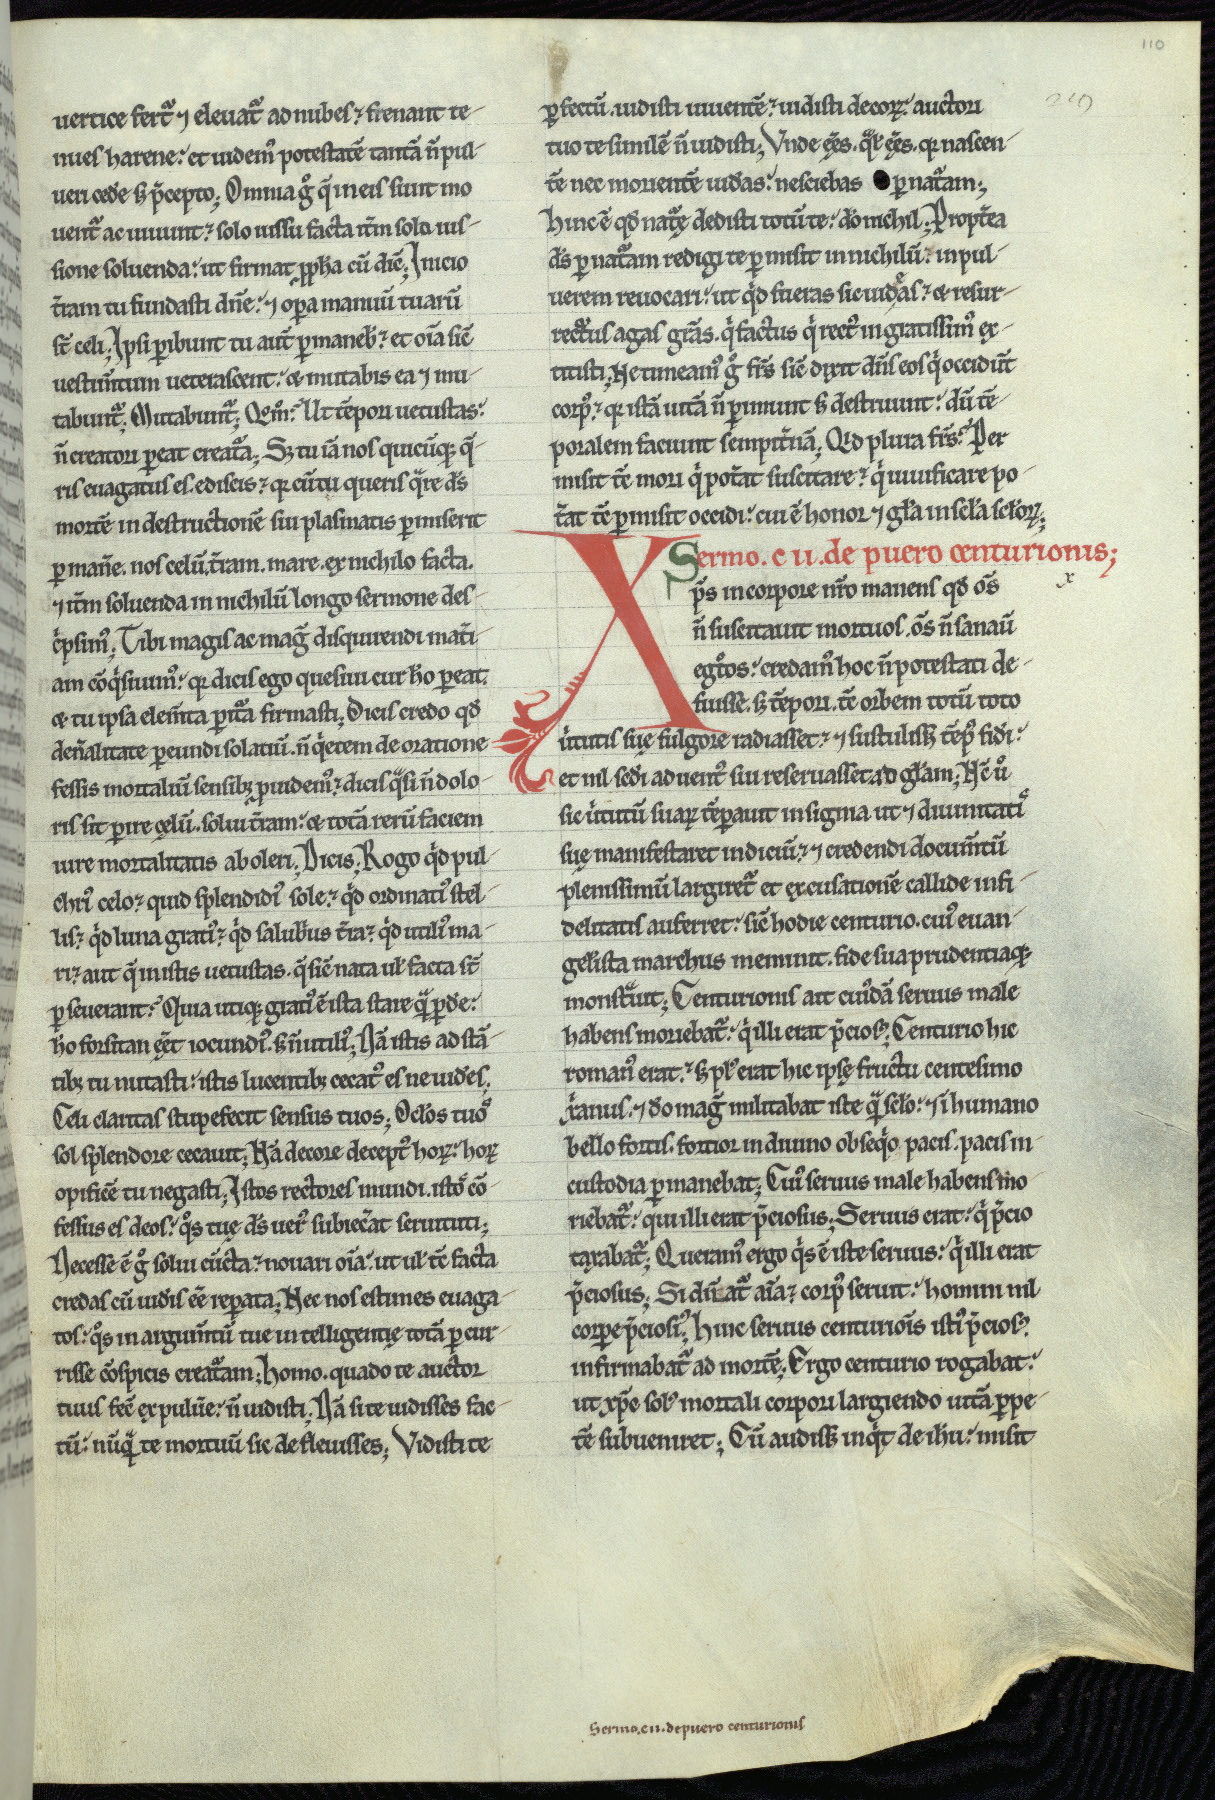 110
uertice fert᷑ ⁊ eleuat᷑ ad nubes? frenant te-
nues harene: et uidem᷒ potestatē tantā n̄ pul-
ueri cedē sꝫ p̄cepto; Omnia gͦ q̄ in eis sunt mo
uent᷑ ac uiuunt? solo iussu facta itm̄ sola ius-
sione soluenda: ut firmat ꝓpħa cū diē; Inicio
t̄ram tu fundasti dn̄e: ⁊ oꝑa manuū tuarū
st̄ celi; Ipsi ꝑibunt tu aut̄ ꝑmaneb᷒? et oīa sic̄
uestim̄tum ueterascent: & mutabis ea ⁊ mu
tabunt᷑; Mutabunt᷑; Qm̄: Ut tēpori uetustas:
n̄ creatori ꝑeat creat᷑a; Sꝫ tu iā nos quicūqꝫ q̄
ris euagatus es. ediscis? qꝛ cū tu queris q̄re d̄s
mortē in destructionē sui plasmatis ꝑmiserit
ꝑman̄e. nos celū. t̄ram. mare. ex nichilo facta.
⁊ itm̄ soluenda in nichilū longo sermone des-
c̄psim᷒; Tibi magis ac mag̃ disquirendi mat̄i-
am cōq̇siuim᷒: qꝛ dicis ego quesiui cur ħo ꝑeat.
& tu ipsa elem̄ta ꝑit᷑a firmasti; Dicis credo qđ
den̄alitate ꝑeundi solatiū. n̄ q̇etem de oratione
fessis mortaliū sensibꝫ ꝓuidem᷒? dicis q̃si n̄ dolo-
ris sit ꝑire cęlū. solui t̄ram: & totā rerū faciem
iure mortalitatis aboleri; Dicis; Rogo q̇d pul-
chri᷒ celo? quid splendidi᷒ sole? q̇d ordinati᷒ stel-
lis? q̇d luna grati᷒? q̇d salubrius t̄ra? q̇d utili᷒ ma-
ri? aut q̄ in istis uetustas. q̄ sic̄ nata uł facta st̄
ꝑseuerant: Quia utiqꝫ grati᷒ ē ista stare q̃ ꝑdē:
ħo forsitan eēt iocundi᷒. sꝫ n̄ utili᷒; Nā istis ad stā-
tibꝫ tu nutasti: istis lucentibꝫ cecat᷒ es ne uides.
Celi claritas stupefecit sensus tuos; Ocłos tuoˢ
sol splendore cecauit; Nā decore decept᷒ hoꝝ: hoꝝ
opificē tu negasti; Istos rectores mundi. istoˢ cō-
fessus es deos: q̊s tue d̄s uer᷒ subiec̄at seruituti;
Necesse ē gͦ solui cūcta? nouari oīa: ut uł tē facta
credas cū uidis eē reꝑata; Nec nos estimes euaga-
tos: q̊s in argum̄tū tue intelligentię totā ꝑcur-
risse cōspicis creat᷑am; homo. quādo te auctor
tuus fec̄ ex puluēe: n̄ uidisti; Nā si te uidisses fac-
tū: nūq̃ te mortuū sic defleuisses; Vidisti te
ꝑfectū. uidisti uiuentē? uidisti decoꝝ: auctori
tuo te similē n̄ uidisti; Vnde eēs. q̃l eēs. qꝛ nascen-
tē nec morientē uidas: nesciebas ꝑ nat᷑am;
hinc ē qđ nat᷑ę dedisti totū te: dō nichil; Propt̄ea
d̄s ꝑ nat᷑am redigi te ꝑmisit in nichilū? in pul-
uerem reuocari: ut q̇d fueras sic uidas? & resur-
rectus agas gr̄as. q̇ factus q̇ rect᷒ ingratissim᷒ ex-
titisti; Ne timeam᷒ gͦ fr̄s sic̄ dixit dn̄s eos q̇ occidūt
corp᷒? qꝛ istā uitā n̄ ꝑimunt sꝫ destruunt: dū tē-
poralem faciunt sempit̄nā; Qid plura fr̄s: Per
misit tē mori q̇ pot̄at suscitare? q̇ uiuificare po-
t̄at tē ꝑmisit occidi: cui ē honor ⁊ gła in scła scłoꝝ;
Sermo. c ii. de puero centurionis;
Xp̄s in corpore nr̄o manens qđ oēs
n̄ suscitauit mortuos. oēs n̄ sanaū
egroͭos: credam᷒ hoc n̄ potestati de-
fuisse. sꝫ tēpori. tē orbem totū toto
ůtutis suę fulgore radiasset? ⁊ sustulissꝫ tēp᷒ fidi:
et nil sedi aduent᷒ sui reseruasset ad głam; Nē ů
sic ůtutū suaꝝ tēperauit insignia ut ⁊ diuinitatiˢ
suę manifestaret indiciū? ⁊ credendi docum̄tū
plenissimū largiret᷑ et excusationē callide infi-
delitatis auferret: sic̄ hodie centurio. cui᷒ euan-
gełista matheus meminit. fide sua prudentiaqꝫ
monstᷓuit; Centurionis ait cui᷒dā seruus male
habens moriebat᷑: q̇ illi erat p̄cios᷒; Centurio hic
roman᷒ erat? sꝫ pl᷒ erat hic ipse fructu centesimo
x̄ianus. ⁊ dō mag̃ militabat iste q̃ scło: ⁊ si humano
bello fortis. fortior in diuino obseq̇o. pacis. pacis in-
custodia ꝑmanebat; Cui᷒ seruus male habens mo
riebat᷑: qui illi erat p̄ciosus; Seruus erat: q̇ p̄cio
taxabat᷑; Queram᷒ ergo q̇s ē iste seruus: q̇ illi erat
p̄ciosus; Si dn̄at᷑ aīa? corp᷒ seruit: homini nil
corpe p̄ciosi᷒; hinc seruus centuriōis isti᷒ p̄cios᷒?
infirmabat᷑ ad mortē; Ergo centurio rogabat:
ut xp̄c sol᷒ mortali corpori largiendo uitā ꝑpe-
tē subueniret; Cū audissꝫ inq̇t de ihū: misit
Sermo. c ii. de puero centurionis